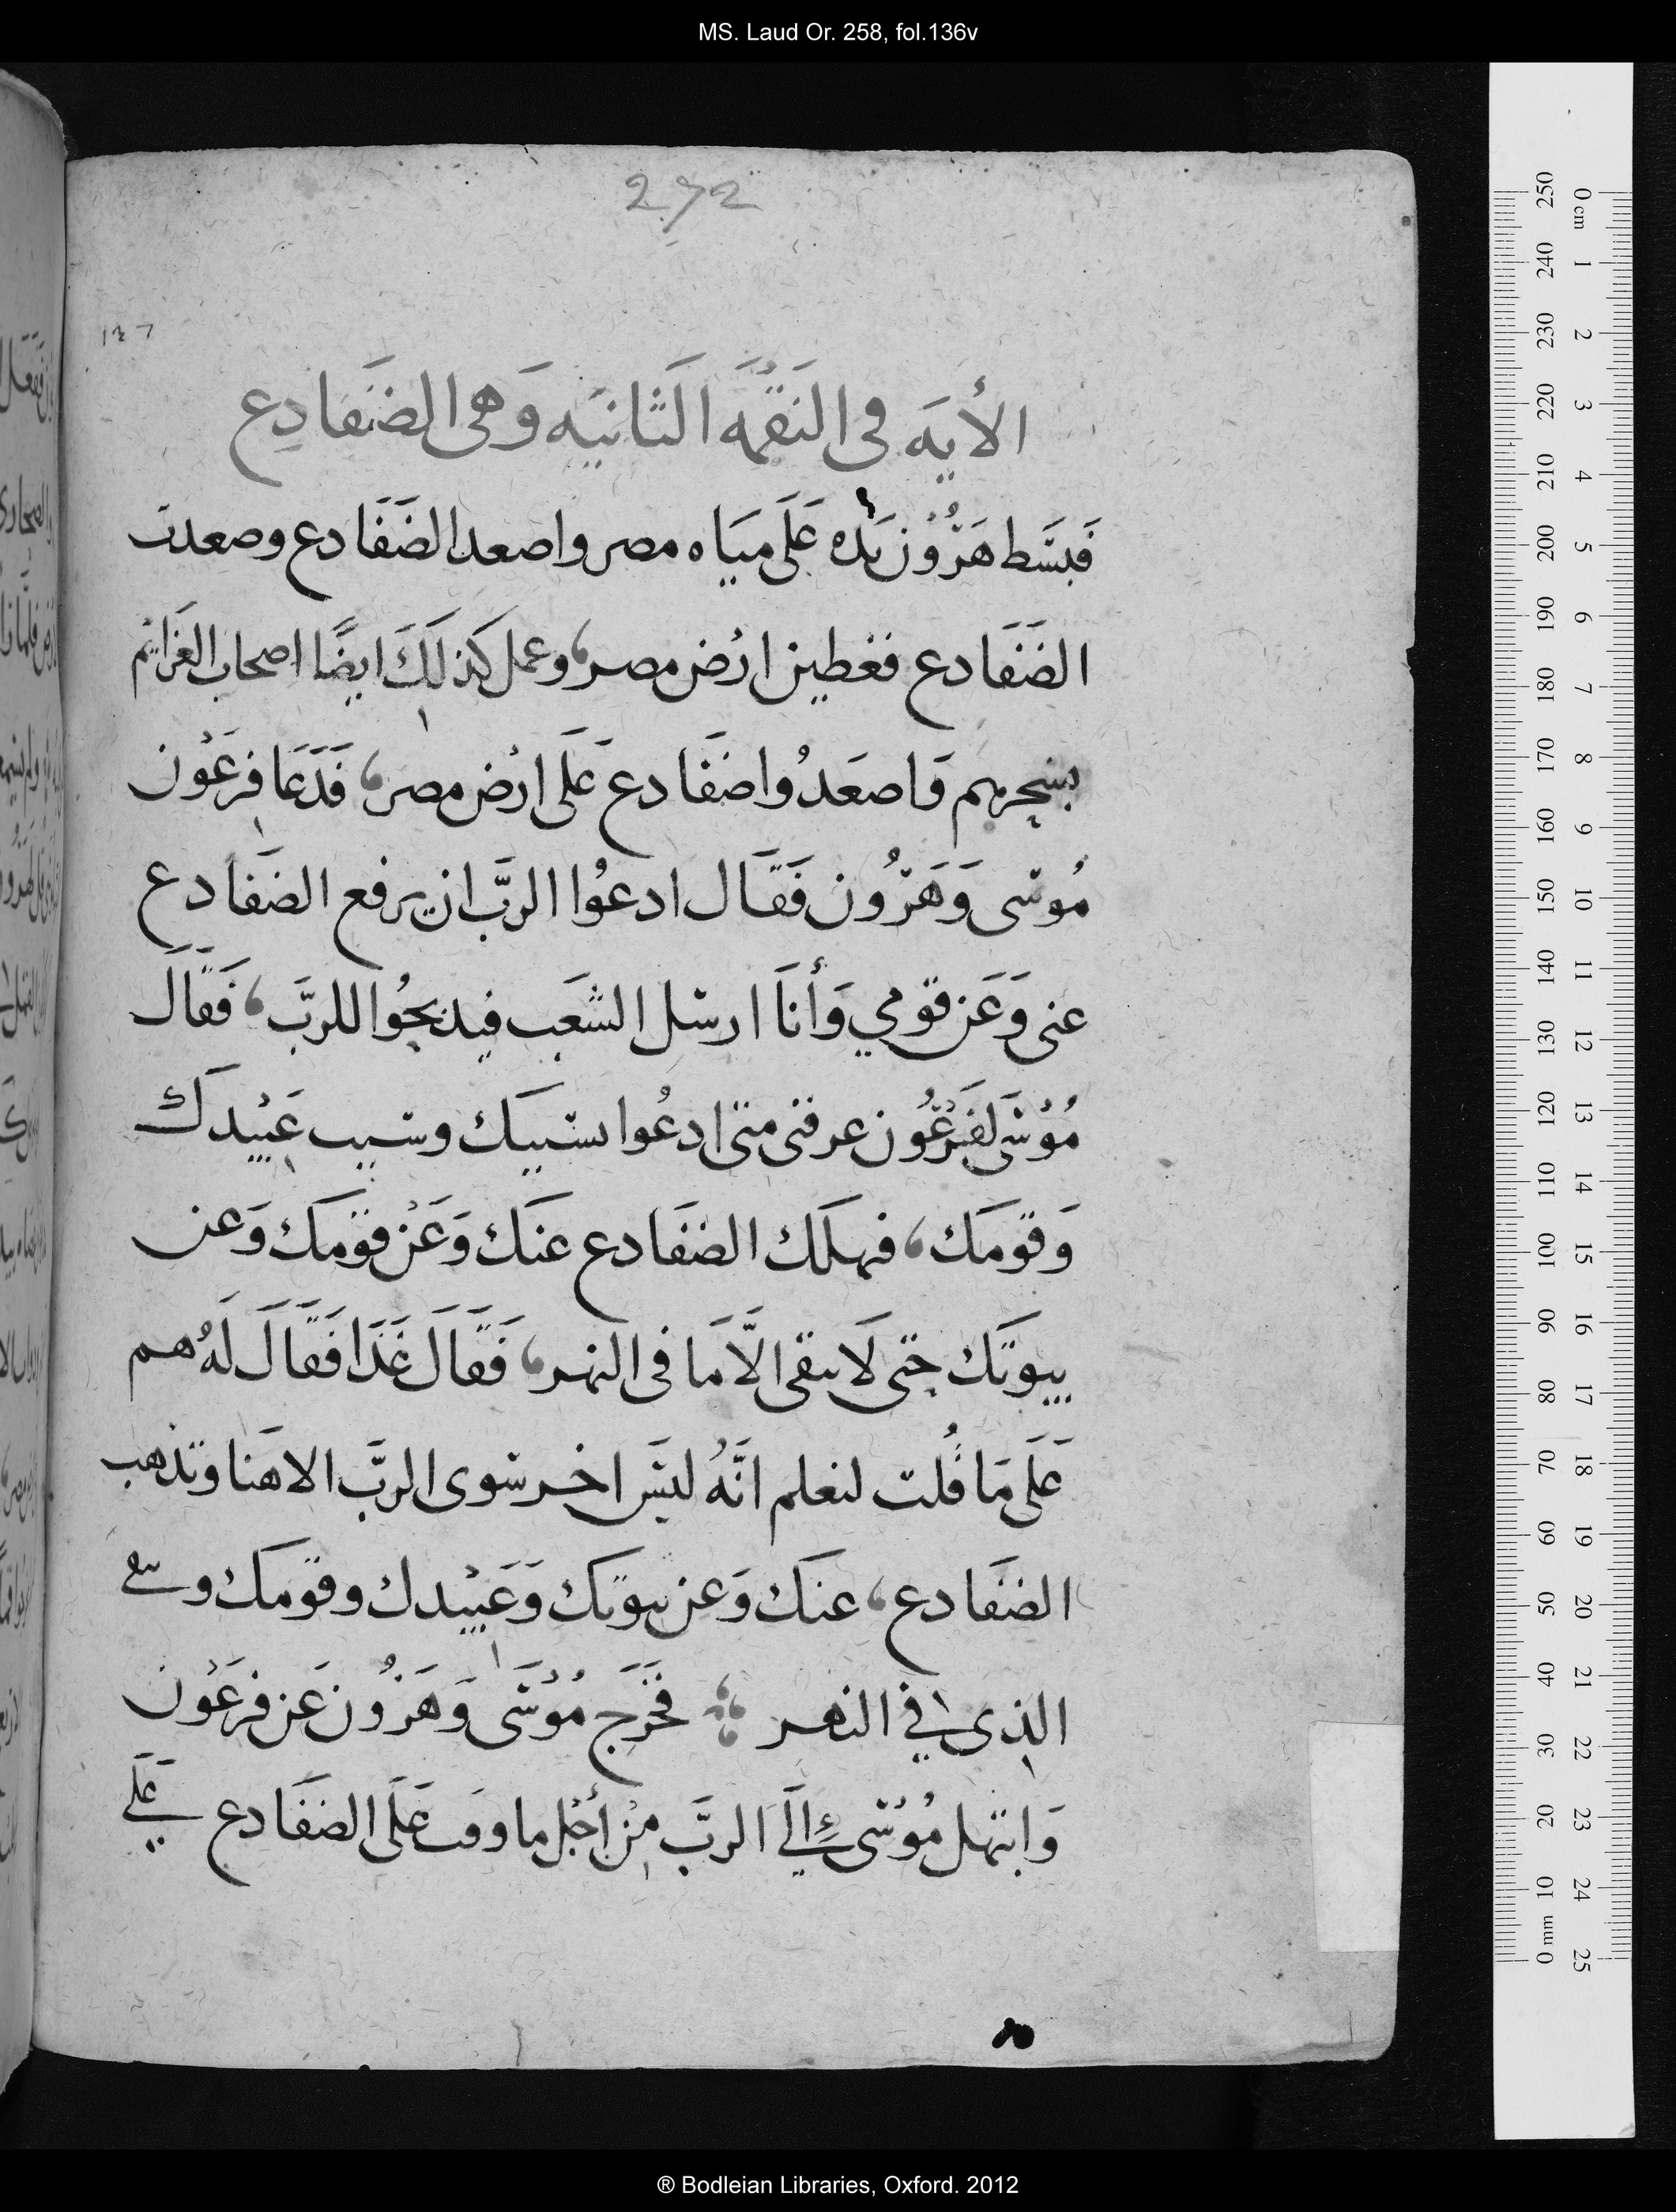 MS. Laud Or. 258, fol.136v
272
137
الأيَه في النَقُمَه الَثانيَه وَهي الضَفادِع
فَبسَط هَرُون يَده عَلَى ميَاه مصر واصعد الضَفَادع وصعدت
الضَفَادع فغطين ارُض مصر، وعمل كذلَكَ ايضًا اصحاب العَزايم
بسحرهم فَاصعَدُوا ضَفَادع عَلَى ارُض مصر، فَدَعَا فرعَوُن
مُوسى وَهَرُون فَقَال ادعُوا الربَّ ان يرفع الضَفادع
عنى وَعَن قومي وَأنَا ارسل الشَعَب فيدبحُوا للربَّ، فَقَالَ
مُوُسَى لفَرعُون عرفنى متى ادعُوا بسَببَك وسبب عَبيُدكَ
وَقومَك، فهلَك الضفَادع عنَك وَعَنُ قومَك وَعن
بيوتَك حتى لَا يبقى الَّا مَا فى النهر، فَقَالَ غَدَا فَقَالَ لَهُ هم
عَلَى مَا قُلت لنعلم انَّهُ ليَس اخر سَوى الربَّ الاهنا وتذهب
الضفَادع، عنَك وَعن بيوتك وَعَبيُدك وقومَك وسَع
الذى فى النهر فخَرَج مُوُسَى وَهَرُون عَن فرعَوُن
وَابتهل مُوُسَى إلَى الربَّ مِنُ أجُل ما وقت عَلَى الضفَادع عَلَى
250 240 230 220 210 200 190 180 170 160 150 140 130 120 110 100 90 80 70 60 50 40 30 20 10 0 mm
0 cm 1 2 3 4 5 6 7 8 9 10 11 12 13 14 15 16 17 18 19 20 21 22 23 24 25
® Bodleian Libraries, Oxford. 2012